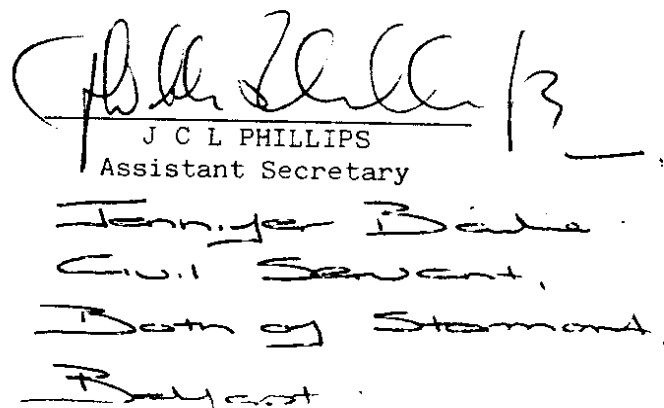 J C L PHILLIPS
Assistant Secretary
Jennifer
Civil Servant,
Both of Stormont,
Belfast.